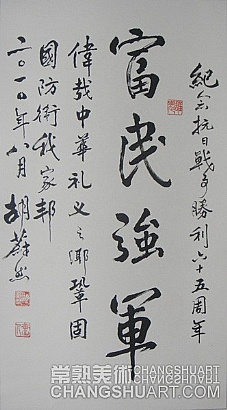 紀念抗日戰爭勝利六十五周年
富民強軍
偉哉中華礼义之鄉鞏固
國防衛我家邦
二〇一〇年八月 胡
常熟美術CHANGSHUART.COM
CHANGSHUART.COM